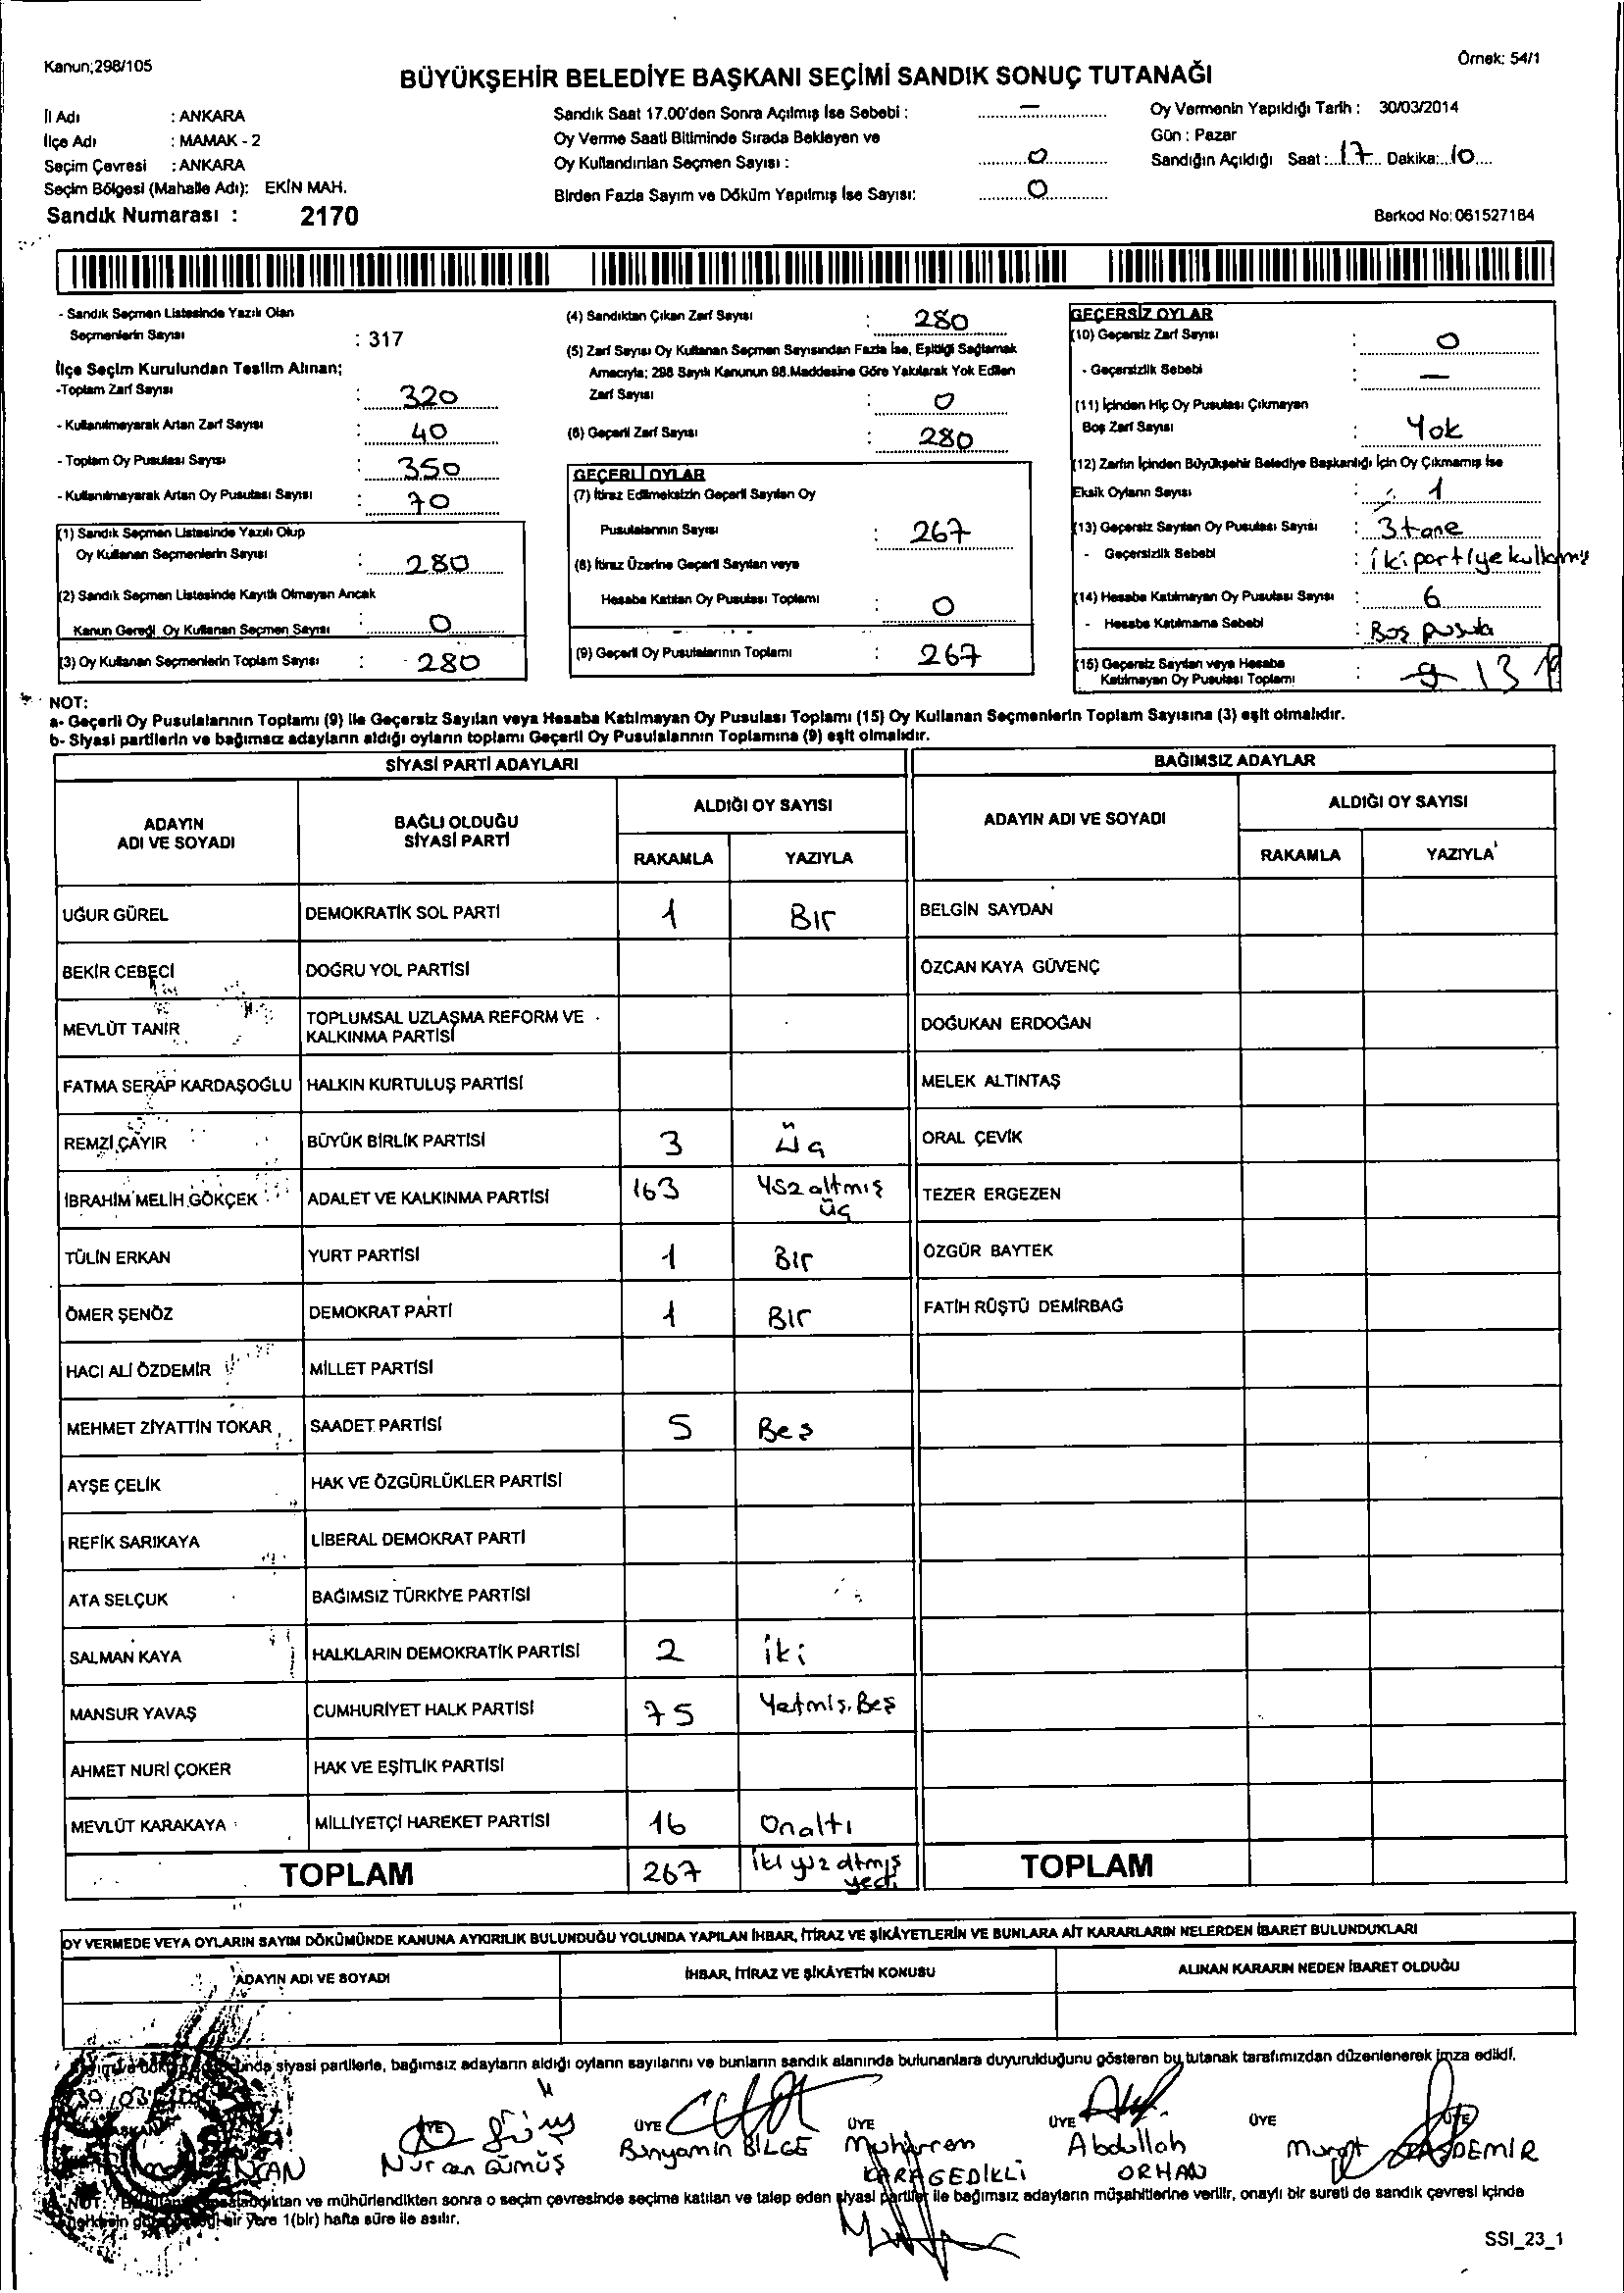 Kanun;298/105
Örnek: 54/1
BÜYÜKŞEHİR BELEDİYE BAŞKANI SEÇİMİ SANDIK SONUÇ TUTANAĞI
İl Adı : ANKARA
İlçe Adı : MAMAK - 2
Seçim Çevresi : ANKARA
Seçim Bölgesi (Mahalle Adı): EKİN MAH.
Sandık Numarası : 2170
Sandık Saat 17.00'den Sonra Açılmış İse Sebebi : —
Oy Verme Saati Bitiminde Sırada Bekleyen ve
Oy Kullandırılan Seçmen Sayısı : 0
Birden Fazla Sayım ve Döküm Yapılmış İse Sayısı: 0
Oy Vermenin Yapıldığı Tarih : 30/03/2014
Gün : Pazar
Sandığın Açıldığı Saat : 17 Dakika: 10
Barkod No: 061527184
- Sandık Seçmen Listesinde Yazılı Olan
Seçmenlerin Sayısı : 317
İlçe Seçim Kurulundan Teslim Alınan;
-Toplam Zarf Sayısı : 320
- Kullanılmayarak Artan Zarf Sayısı : 40
- Toplam Oy Pusulası Sayısı : 350
- Kullanılmayarak Artan Oy Pusulası Sayısı : 70
(1) Sandık Seçmen Listesinde Yazılı Olup
Oy Kullanan Seçmenlerin Sayısı : 280
(2) Sandık Seçmen Listesinde Kayıtlı Olmayan Ancak
Kanun Gereği Oy Kullanan Seçmen Sayısı : 0
(3) Oy Kullanan Seçmenlerin Toplam Sayısı : 280
(4) Sandıktan Çıkan Zarf Sayısı : 280
(5) Zarf Sayısı Oy Kullanan Seçmen Sayısından Fazla İse, Eşitliği Sağlamak
Amacıyla; 298 Sayılı Kanunun 98.Maddesine Göre Yakılarak Yok Edilen
Zarf Sayısı : 0
(6) Geçerli Zarf Sayısı : 280
GEÇERLİ OYLAR
(7) İtiraz Edilmeksizin Geçerli Sayılan Oy
Pusulalarının Sayısı : 267
(8) İtiraz Üzerine Geçerli Sayılan veya
Hesaba Katılan Oy Pusulası Toplamı : 0
(9) Geçerli Oy Pusulalarının Toplamı : 267
GEÇERSİZ OYLAR
(10) Geçersiz Zarf Sayısı : 0
- Geçersizlik Sebebi : —
(11) İçinden Hiç Oy Pusulası Çıkmayan
Boş Zarf Sayısı : Yok
(12) Zarfın İçinden Büyükşehir Belediye Başkanlığı İçin Oy Çıkmamış İse
Eksik Oyların Sayısı : 1
(13) Geçersiz Sayılan Oy Pusulası Sayısı : 3 tane
- Geçersizlik Sebebi : iki partiye kullanmış
(14) Hesaba Katılmayan Oy Pusulası Sayısı : 6
- Hesaba Katılmama Sebebi : Boş pusula
(15) Geçersiz Sayılan veya Hesaba
Katılmayan Oy Pusulası Toplamı : 9 13
NOT:
a- Geçerli Oy Pusulalarının Toplamı (9) ile Geçersiz Sayılan veya Hesaba Katılmayan Oy Pusulası Toplamı (15) Oy Kullanan Seçmenlerin Toplam Sayısına (3) eşit olmalıdır.
b- Siyasi partilerin ve bağımsız adayların aldığı oyların toplamı Geçerli Oy Pusulalarının Toplamına (9) eşit olmalıdır.
SİYASİ PARTİ ADAYLARI BAĞIMSIZ ADAYLAR
ADAYIN
ADI VE SOYADI
BAĞLI OLDUĞU
SİYASİ PARTİ
ALDIĞI OY SAYISI
RAKAMLA YAZIYLA
ADAYIN ADI VE SOYADI
ALDIĞI OY SAYISI
RAKAMLA YAZIYLA
UĞUR GÜREL DEMOKRATİK SOL PARTİ 1 Bir BELGİN SAYDAN
BEKİR CEBECİ DOĞRU YOL PARTİSİ ÖZCAN KAYA GÜVENÇ
MEVLÜT TANIR TOPLUMSAL UZLAŞMA REFORM VE
KALKINMA PARTİSİ DOĞUKAN ERDOĞAN
FATMA SERAP KARDAŞOĞLU HALKIN KURTULUŞ PARTİSİ MELEK ALTINTAŞ
REMZİ ÇAYIR BÜYÜK BİRLİK PARTİSİ 3 Üç ORAL ÇEVİK
İBRAHİM MELİH GÖKÇEK ADALET VE KALKINMA PARTİSİ 163 Yüz altmış
üç TEZER ERGEZEN
TÜLİN ERKAN YURT PARTİSİ 1 Bir ÖZGÜR BAYTEK
ÖMER ŞENÖZ DEMOKRAT PARTİ 1 Bir FATİH RÜŞTÜ DEMİRBAĞ
HACI ALİ ÖZDEMİR MİLLET PARTİSİ
MEHMET ZİYATTİN TOKAR SAADET PARTİSİ 5 Beş
AYŞE ÇELİK HAK VE ÖZGÜRLÜKLER PARTİSİ
REFİK SARIKAYA LİBERAL DEMOKRAT PARTİ
ATA SELÇUK BAĞIMSIZ TÜRKİYE PARTİSİ
SALMAN KAYA HALKLARIN DEMOKRATİK PARTİSİ 2 iki
MANSUR YAVAŞ CUMHURİYET HALK PARTİSİ 75 Yetmiş Beş
AHMET NURİ ÇOKER HAK VE EŞİTLİK PARTİSİ
MEVLÜT KARAKAYA MİLLİYETÇİ HAREKET PARTİSİ 16 Onaltı
TOPLAM 267 iki yüz altmış
yedi TOPLAM
OY VERMEDE VEYA OYLARIN SAYIM DÖKÜMÜNDE KANUNA AYKIRILIK BULUNDUĞU YOLUNDA YAPILAN İHBAR, İTİRAZ VE ŞİKÂYETLERİN VE BUNLARA AİT KARARLARIN NELERDEN İBARET BULUNDUKLARI
ADAYIN ADI VE SOYADI İHBAR, İTİRAZ VE ŞİKÂYETİN KONUSU ALINAN KARARIN NEDEN İBARET OLDUĞU
siyasi partilerle, bağımsız adayların aldığı oyların sayılarını ve bunların sandık alanında bulunanlara duyurulduğunu gösteren bu tutanak tarafımızdan düzenlenerek imza edildi.
ÜYE ÜYE ÜYE ÜYE ÜYE
Nurcan Gümüş Bünyamin BİLGE Muharrem Abdullah Murat TAŞDEMİR
KARAGEDİKLİ ORHAN
NOT: ve mühürlendikten sonra o seçim çevresinde seçime katılan ve talep eden siyasi partiler ile bağımsız adayların müşahitlerine verilir, onaylı bir sureti de sandık çevresi içinde
bir yere 1(bir) hafta süre ile asılır.
SSI_23_1